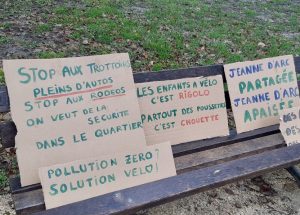 STOP AUX TROTTOIRS
PLEINS D'AUTOS
STOP AUX RODEOS
ON VEUT DE LA
SECURITE
DANS LE QUARTIER
POLLUTION ZERO?
SOLUTION VELO!
LES ENFANTS A VÉLO
C'EST RIGOLO
PARTOUT DES POUSSETTES
C'EST CHOUETTE
JEANNE D'ARC
PARTAGÉE
JEANNE D'ARC
APAISÉE
DES
DE